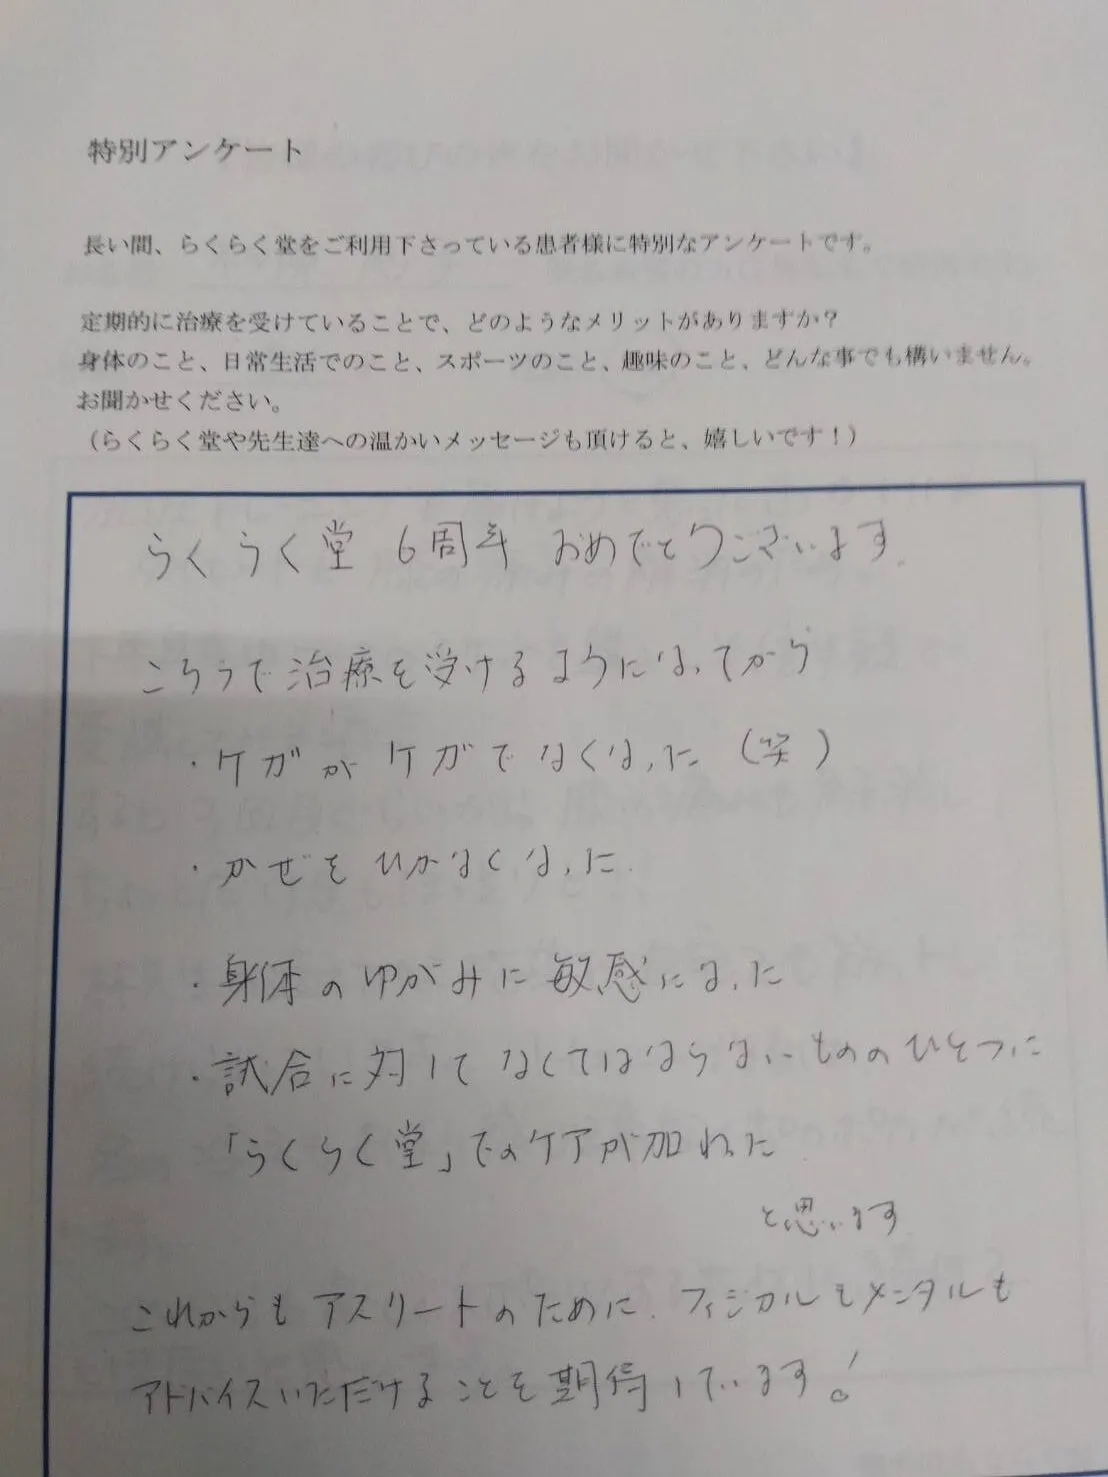 特別アンケート
長い間、らくらく堂をご利用下さっている患者様に特別なアンケートです。
定期的に治療を受けていることで、どのようなメリットがありますか？
身体のこと、日常生活でのこと、スポーツのこと、趣味のこと、どんな事でも構いません。
お聞かせください。
（らくらく堂や先生達への温かいメッセージも頂けると、嬉しいです！）
らくらく堂 6周年 おめでとうございます。
こちらで治療を受けるようになってから
・ケガがケガでなくなった（笑）
・かぜをひかなくなった。
・身体のゆがみに敏感になった
・試合に対してなくてはならないもののひとつに
「らくらく堂」でのケアが加わった
と思います
これからもアスリートのために、フィジカルもメンタルも
アドバイスいただけることを期待しています！